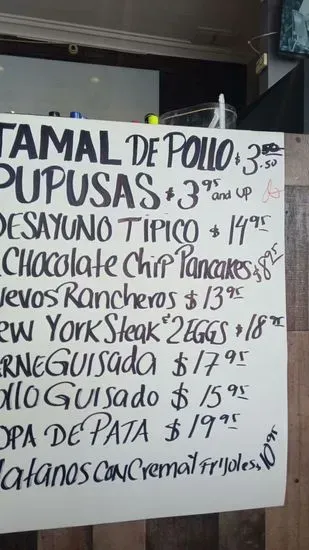 TAMAL DE POLLO $3.50
PUPUSAS $3.95 and UP
DESAYUNO TIPICO $14.95
CHOCOLATE CHIP PANCAKES $8.95
uevos Rancheros $13.95
ew York Steak & 2 EGGS $18.95
ERNE GUISADA $17.95
ollo Guisado $15.95
OPA DE PATA $19.95
latanos con Crema y Frijoles $10.95